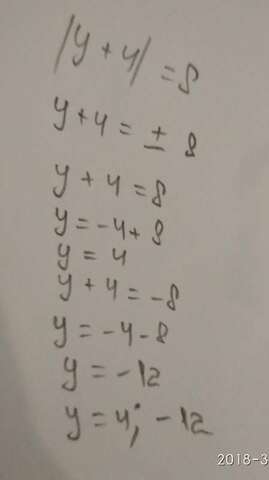 |y + 4| = 8
y + 4 = ± 8
y + 4 = 8
y = -4 + 8
y = 4
y + 4 = -8
y = -4 - 8
y = -12
y = 4; -12
2018-3